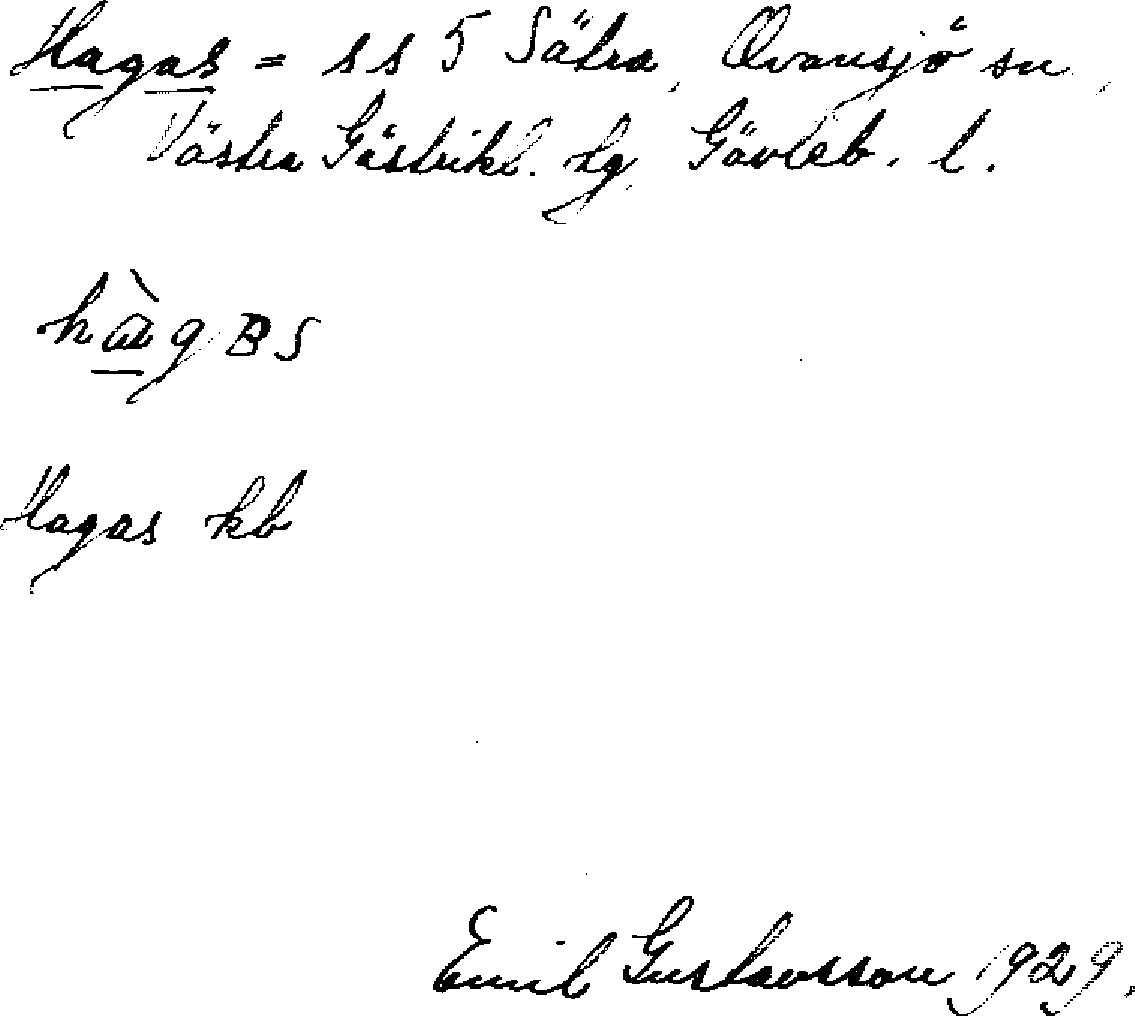 Hagas = ss 5 Sätra, Ovansjö sn,
Västra Gästrikl. tg, Gävleb. l.
hàgBS
Hagas kb
Emil Gustavsson 1929.